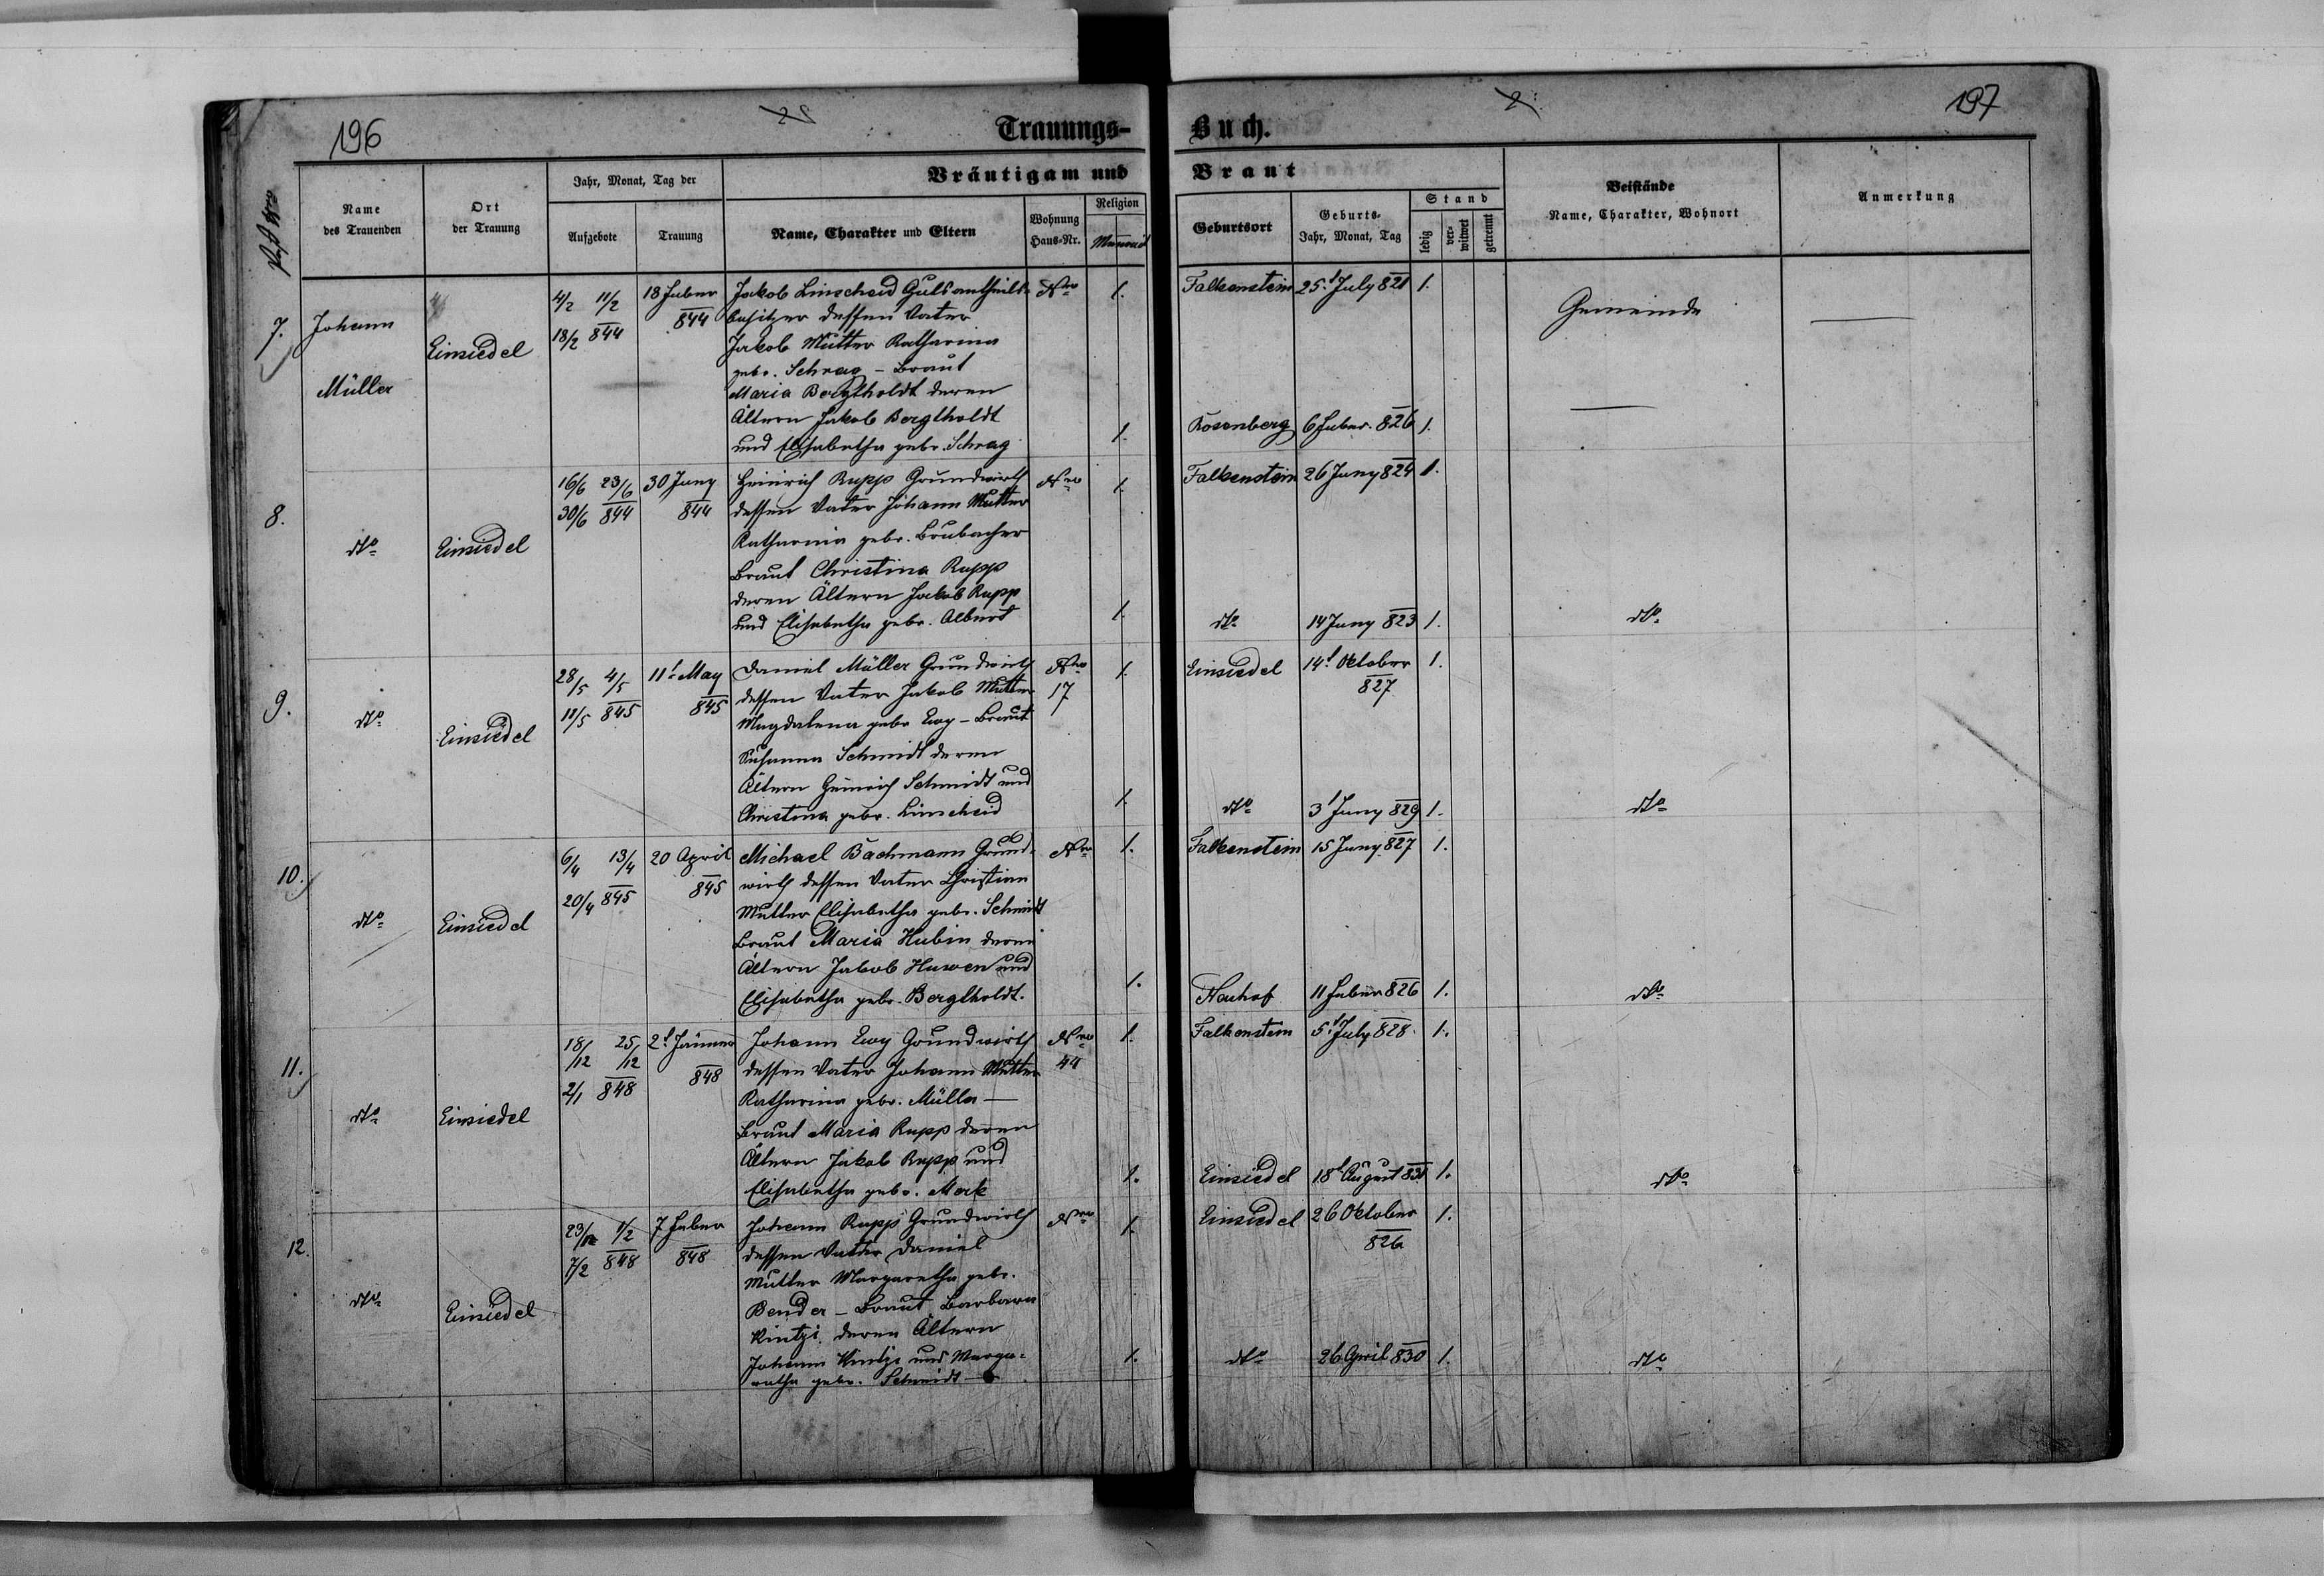 196
25
Trauungs-
Buch.
2
197
Post Nro
Name
des Trauenden
Ort
der Trauung
Jahr, Monat, Tag der
Aufgebote
Trauung
Bräutigam und
Braut
Name, Charakter und Eltern
Wohnung
Haus-Nr.
Religion
Geburtsort
Geburts-
Jahr, Monat, Tag
Stand
ledig
ver-
witwet
getrennt
Beistände
Name, Charakter, Wohnort
Anmerkung
7.
Johann
Müller
Einsiedel
4/2 11/2
18/2 844
18 Feber
844
Jakob Linscheid Gutsantheils-
besitzer dessen Vater
Jakob Mutter Katharina
gebr. Schrag – Braut
Maria Bergtholdt deren
Ältern Jakob Bergtholdt
und Elisabetha gebr. Schrag
Nro
1.
1.
Falkenstein 25t July 821 1.
Rosenberg 6 Feber. 826 1.
Gemeinde
8.
dto
Einsiedel
16/6 23/6
30/6 844
30 Juny
844
Heinrich Rupp Grundwirth
dessen Vater Johann Mutter
Katharina gebr. Brubacher
Braut Christina Rupp
deren Ältern Jakob Rupp
und Elisabetha gebr. Albert
Nro
1.
1.
Falkenstein 26 Juny 824 1.
dto 14 Juny 823 1.
dto
9.
dto
Einsiedel
28/5 4/5
11/5 845
11t May
845
Daniel Müller Grundwirth
dessen Vater Jakob Mutter
Magdalena gebr Ewy – Braut
Susanna Schmidt deren
Ältern Heinrich Schmidt und
Christina gebr. Linscheid
Nro
17
1.
1.
Einsiedel 14t Oktober 1.
827
dto 3t Juny 829 1.
dto
10.
dto
Einsiedel
6/4 13/4
20/4 845
20 April
845
Michael Bachmann Grund-
wirth dessen Vater Christian
Mutter Elisabetha gebr. Schmidt
Braut Maria Hubin deren
Ältern Jakob Huwen und
Elisabetha gebr. Bergtholdt.
Nro
1.
1.
Falkenstein 15 Juny 827 1.
Neuhof 11 Feber 826 1.
dto
11.
dto
Einsiedel
18/12 25/12
2/1 848
2t Jänner
848
Johann Ewy Grundwirth
dessen Vater Johann Mutter
Katharina gebr. Müller —
Braut Maria Rupp deren
Ältern Jakob Rupp und
Elisabetha gebr. Merk
Nro
44
1.
1.
Falkenstein 5t July 828 1.
Einsiedel 18t August 831 1.
dto
12.
dto
Einsiedel
1/2
7/2 848
7 Feber
848
Johann Rupp Grundwirth
dessen Vater Daniel
Mutter Margaretha gebr.
Bender – Braut Barbara
Kintzi deren Ältern
Johann Kintzi und Marga-
retha gebr. Schmidt
Nro
1.
1.
Einsiedel 26 Oktober 1.
826
dto 26 April 830 1.
dto